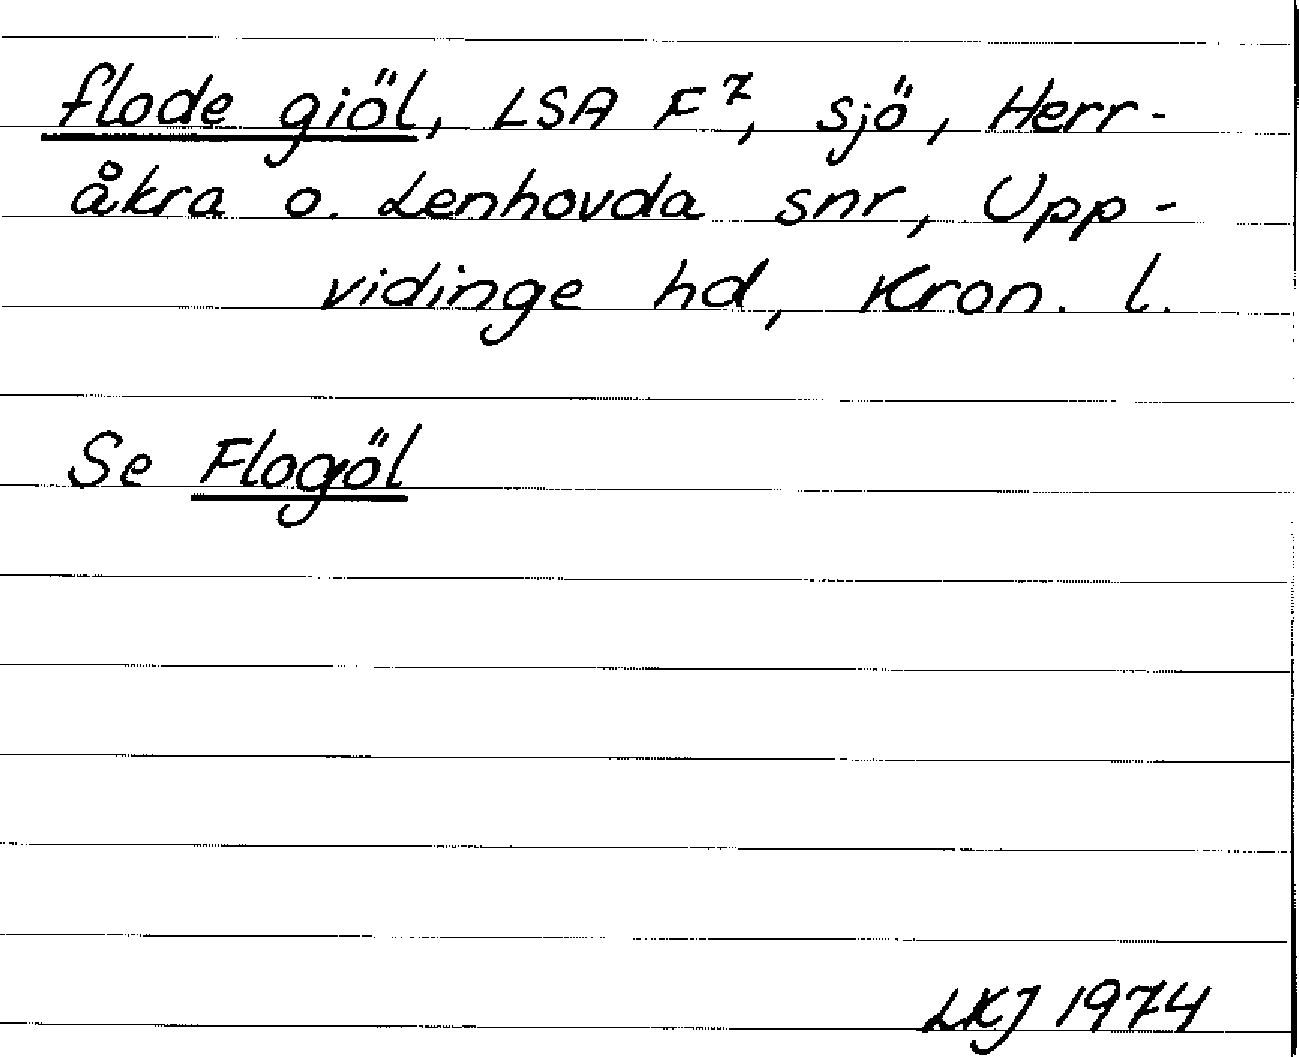 flode giöl, LSA F⁷, sjö, Herr-
åkra o. Lenhovda snr, Upp-
vidinge hd, Kron. l.
Se Flogöl
LKJ 1974